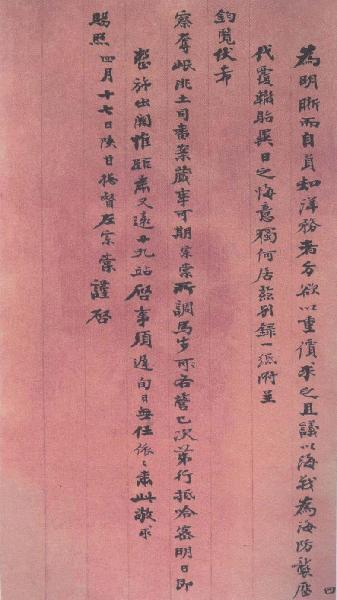 為明晰而自負知洋務者方欲以重價求之且議以海戰為海防襲歷
代覆轍貽異日之悔意獨何居茲別錄一紙附呈
鈞覽伏希
察奪岷洮土司番案蕆事可期宗棠所調馬步所各營已次第行抵哈密明日即
整旆出關惟距肅又遠十九站啓事須遲旬日無任依依肅此敬求
賜照四月十七日陝甘總督左宗棠謹啓
四